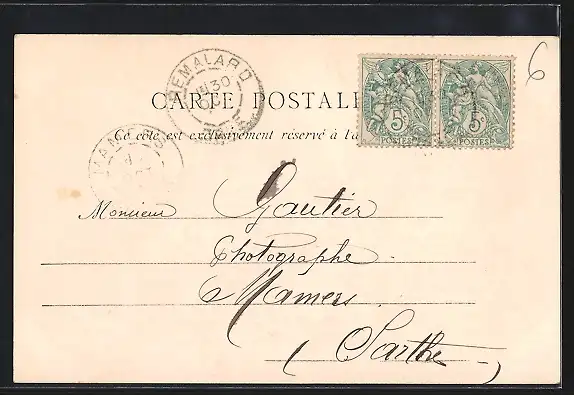 REMALARD
30
CARTE POSTAL
Ce côté est exclusivement réservé à l'a
5c 5c
POSTES POSTES
6
MAM
Monsieur Gautier
Photographe
Mamers
(Sarthe)